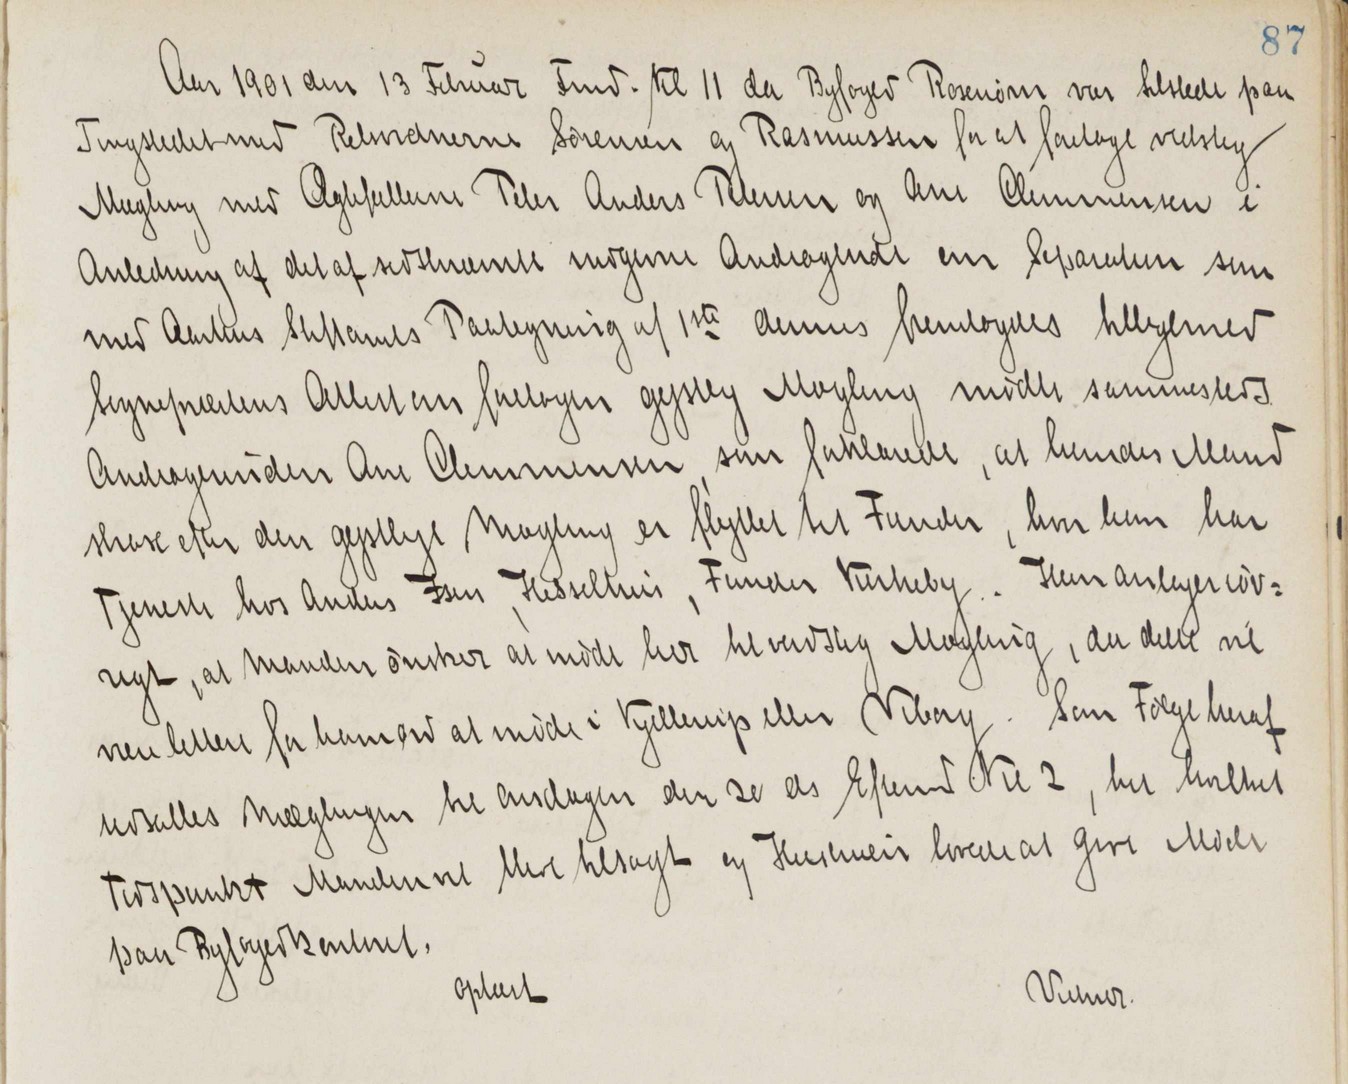 87
Aar 1901 den 13 Februar Fmd. Kl 11 da Byfoged Rosenörn var tilstede paa
Tingstedet med Retsvidnerne Sörensen og Rasmussen for at foretage verdslig
Mægling med Ægtefællerne Peter Anders Petersen og Ane Clemmensen i
Anledning af det af sidstnævnte indgivne Andragende om Separation som
med Aarhus Stiftamts Paategning af 1ste dennes fremlagdes tilligemed
Sognepræstens Attest om foretagen gejstlig Mægling mödte sammesteds
Andragerinden Ane Clemmensen, som forklarede, at hendes Mand
strax efter den gejstlige Mægling er flyttet til Funder, hvor han har
Tjeneste hos Anders Issen, Hesselhus, Funder Kirkeby. Hun antager iöv=
rigt, at Manden önsker at möde her til verdslig Mægling, da dette vil
være lettere for ham end at möde i Kjellerup eller Viborg. Som Fölge heraf
udsattes Mæglingen til Onsdagen den 20 ds Eftermd Kl 2, til hvilket
Tidspunkt Manden vil blive tilsagt og Hustruen lovede at give Möde
paa Byfogedkontoret.
oplæst Vidner.